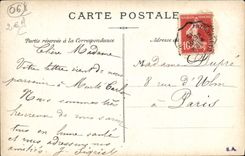 06
CARTE POSTALE
Partie réservée à la Correspondance
Chère Madame
Votre lettre vient de nous
parvenir à Monte Carlo
Nous sommes très
heureux de vous savoir
tous en bonne santé
et vous adressons nos
amitiés.
Madame Dupré
8 rue d'Ulm
à Paris
10
S.A.